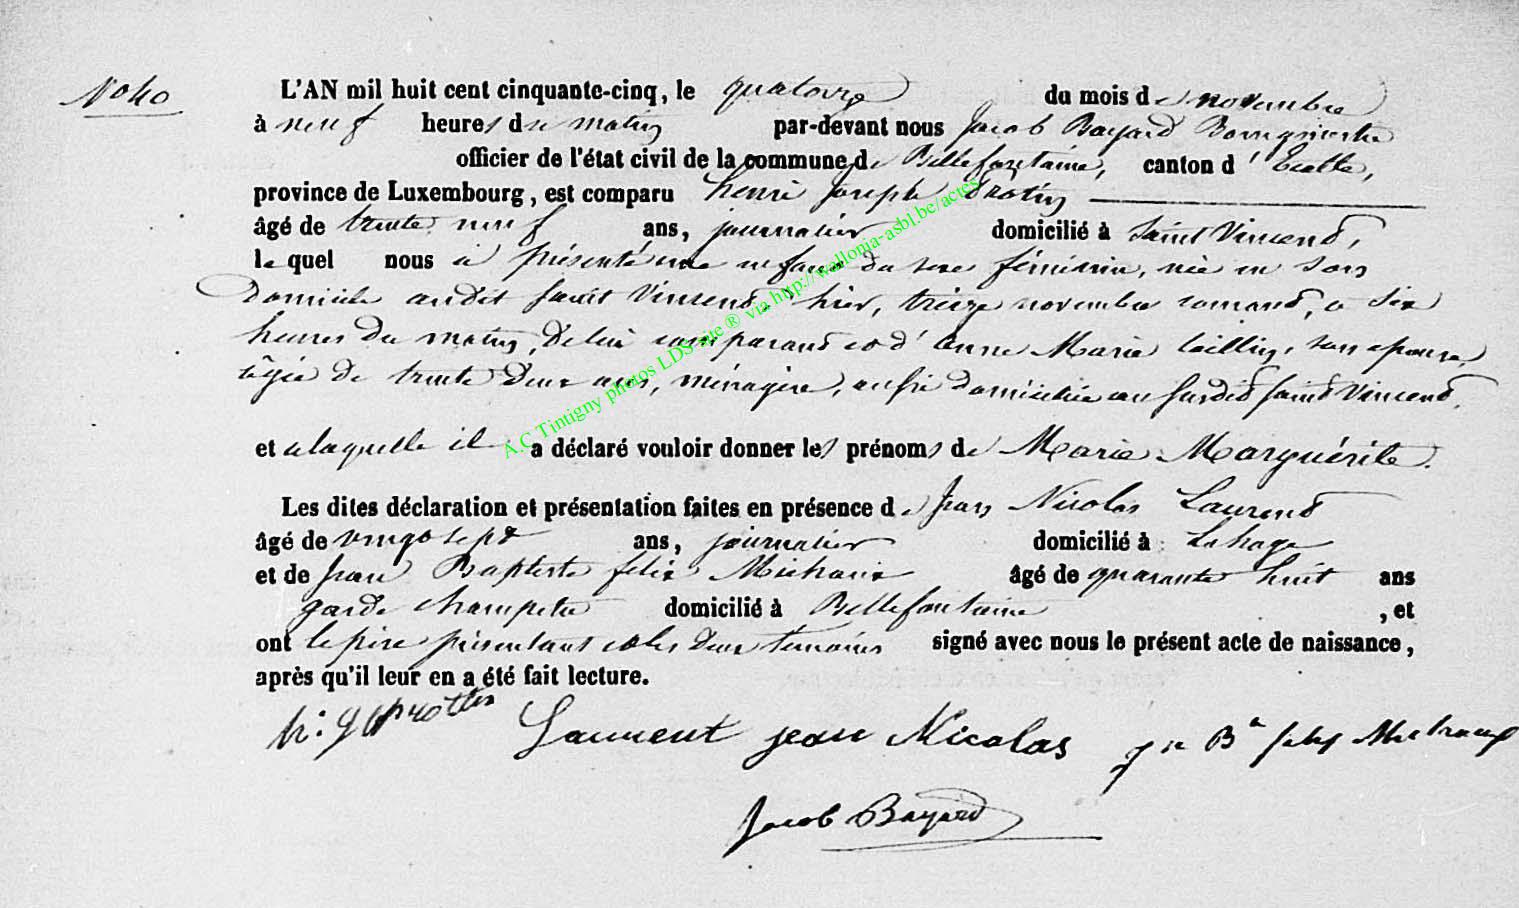 No 40
L'AN mil huit cent cinquante-cinq, le quatorze du mois de novembre
à neuf heures du matin par-devant nous Jacob Bayard Bourgmestre
officier de l'état civil de la commune de Bellefontaine, canton d'Etalle,
province de Luxembourg, est comparu henri Joseph
âgé de trente neuf ans, journalier domicilié à Saint Vincend,
le quel nous a présenté une enfant du sexe féminin, née en son
domicile audit Saint Vincend, hier, treize novembre courand, a six
heures du matin, de lui comparand et d'Anne Marie son epouse,
âgée de trente deux ans, ménagère, ausi domiciliée au susdit Saint Vincend,
et a laquelle il a déclaré vouloir donner les prénoms de Marie Marguérite.
Les dites déclaration et présentation faites en présence de Jean Nicolas Laurend
âgé de vingt sept ans, journalier domicilié à Lahage
et de Jean Baptiste felix Michaux âgé de quarante huit ans
garde champetre domicilié à Bellefontaine, et
ont le père présentant et les deux temoins signé avec nous le présent acte de naissance,
après qu'il leur en a été fait lecture.
Laurent jean Nicolas
Jacob Bayard
A.C Tintigny photos LDS site ® via http://wallonia-asbl.be/actes